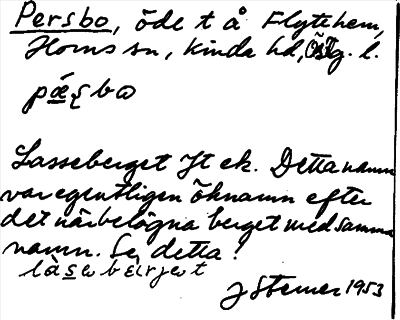 Persbo, öde t å Flyttehem,
Horns sn, Kinda hd, Östg. l.
pǽʂbω
Lasseberget Jt ek. Detta namn
var egentligen öknamn efter
det närbelägna berget med samma
namn. Se detta!
làsebærjet
J Sterner 1953